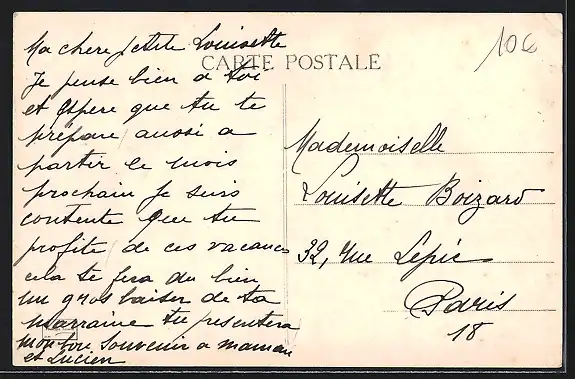 Ma chere petite Louisette
CARTE POSTALE
10€
Je pense bien a toi
et espere que tu te
prépare aussi a
partir le mois
prochain je suis
contente que tu
profite de ces vacances
cela te fera du bien
un gros baiser de ta
marraine tu presentera
mon bon souvenir a maman
et Lucien
Mademoiselle
Louisette Boizard
32, rue Lepic
Paris
18